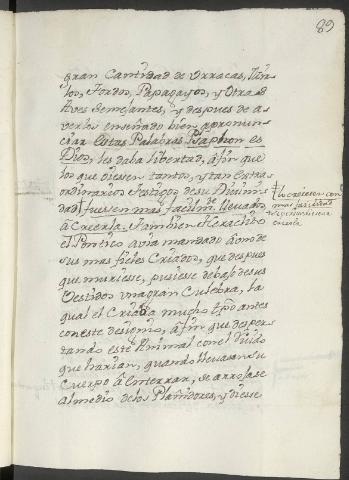 89
gran Cantidad de Urracas, Tur-
dos, Tordos, Papagayos, y Otras
Aves Semejantes, y despues de a-
verlos enseñado bien a pronun-
ciar Estas Palabras Psaphon es
Dios, les daba libertad, a fin que
los que oiesen tantos, y tan extra-
ordinarios testigos de su Divini-
dad fuesen mas facilm.te llevados
à Creerla. Tambien Heraclito
el Pontico avia mandado à uno de
sus mas fieles Criados, que despues
que muriesse, pusiesse debajo de sus
Vestidos una gran Culebra, la
qual el Criaba mucho tpo antes
con este designio, à fin que desper-
tando este Animal con el ruido
que harian, quando llevassen su
Cuerpo à Enterrar, se arrojase
al medio de los Plañidores, y diesse
la creiesen con
mas facilidad